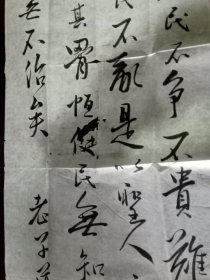 民不争不貴難
民不亂是以聖人
其骨恆使民無知
無不治矣 老子